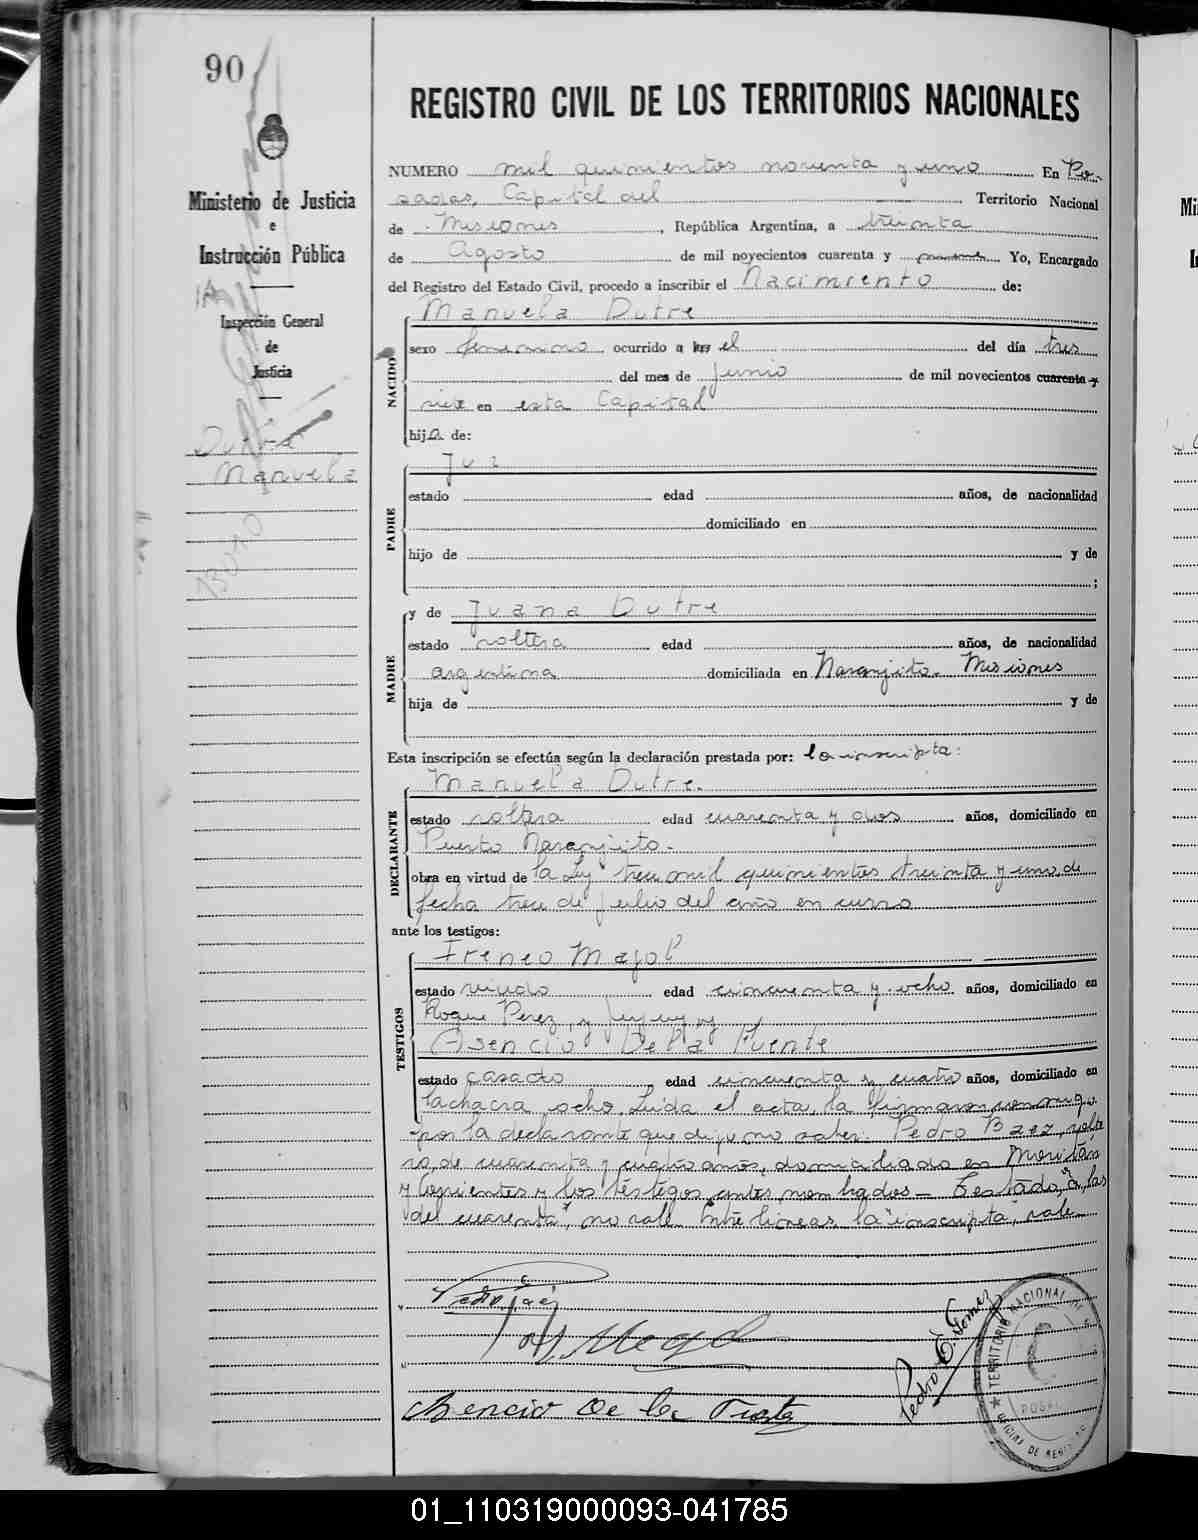 90
REGISTRO CIVIL DE LOS TERRITORIOS NACIONALES
Ministerio de Justicia
e
Instrucción Pública
Inspección General
de
Justicia
Dutre
Manuela
NUMERO mil quinientos noventa y uno En Po-
sadas, Capital del Territorio Nacional
de Misiones, República Argentina, a treinta
de Agosto de mil novecientos cuarenta y Yo, Encargado
del Registro del Estado Civil, procedo a inscribir el Nacimiento de:
NACIDO
Manuela Dutre
sexo femenino ocurrido a las el del día tres
del mes de Junio de mil novecientos cuarenta y
siete en esta Capital
hija de:
PADRE
estado edad años, de nacionalidad
domiciliado en
hijo de y de
;
MADRE
y de Juana Dutre
estado soltera edad años, de nacionalidad
argentina domiciliada en Naranjito. Misiones
hija de y de
Esta inscripción se efectúa según la declaración prestada por: la inscripta:
DECLARANTE
Manuela Dutre.
estado soltera edad cuarenta y dos años, domiciliado en
Puerto Naranjito.
obra en virtud de la Ley trece mil quinientos treinta y uno, de
fecha trece de julio del año en curso
ante los testigos:
TESTIGOS
Ireneo Majol
estado viudo edad cincuenta y ocho años, domiciliado en
Roque Perez y Jujuy y
Asencio De la Fuente
estado casado edad cincuenta y cuatro años, domiciliado en
la chacra ocho. Leida el acta, la firmaron conmigo
por la declarante que dijo no saber: Pedro Baez, solte
ro, de cuarenta y cuatro años, domiciliado en
y Corrientes y los testigos antes nombrados — Testado "a las
del cuarenta", no vale. Entre lineas la "inscripta", vale
Asencio De la
Pedro E. Gomez
TERRITORIO NACIONAL DE
POSADAS
OFICINA DE REGISTRO
01_110319000093-041785